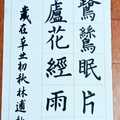 鷺鷥眠片
蘆花經雨
歲在辛丑初秋林逋